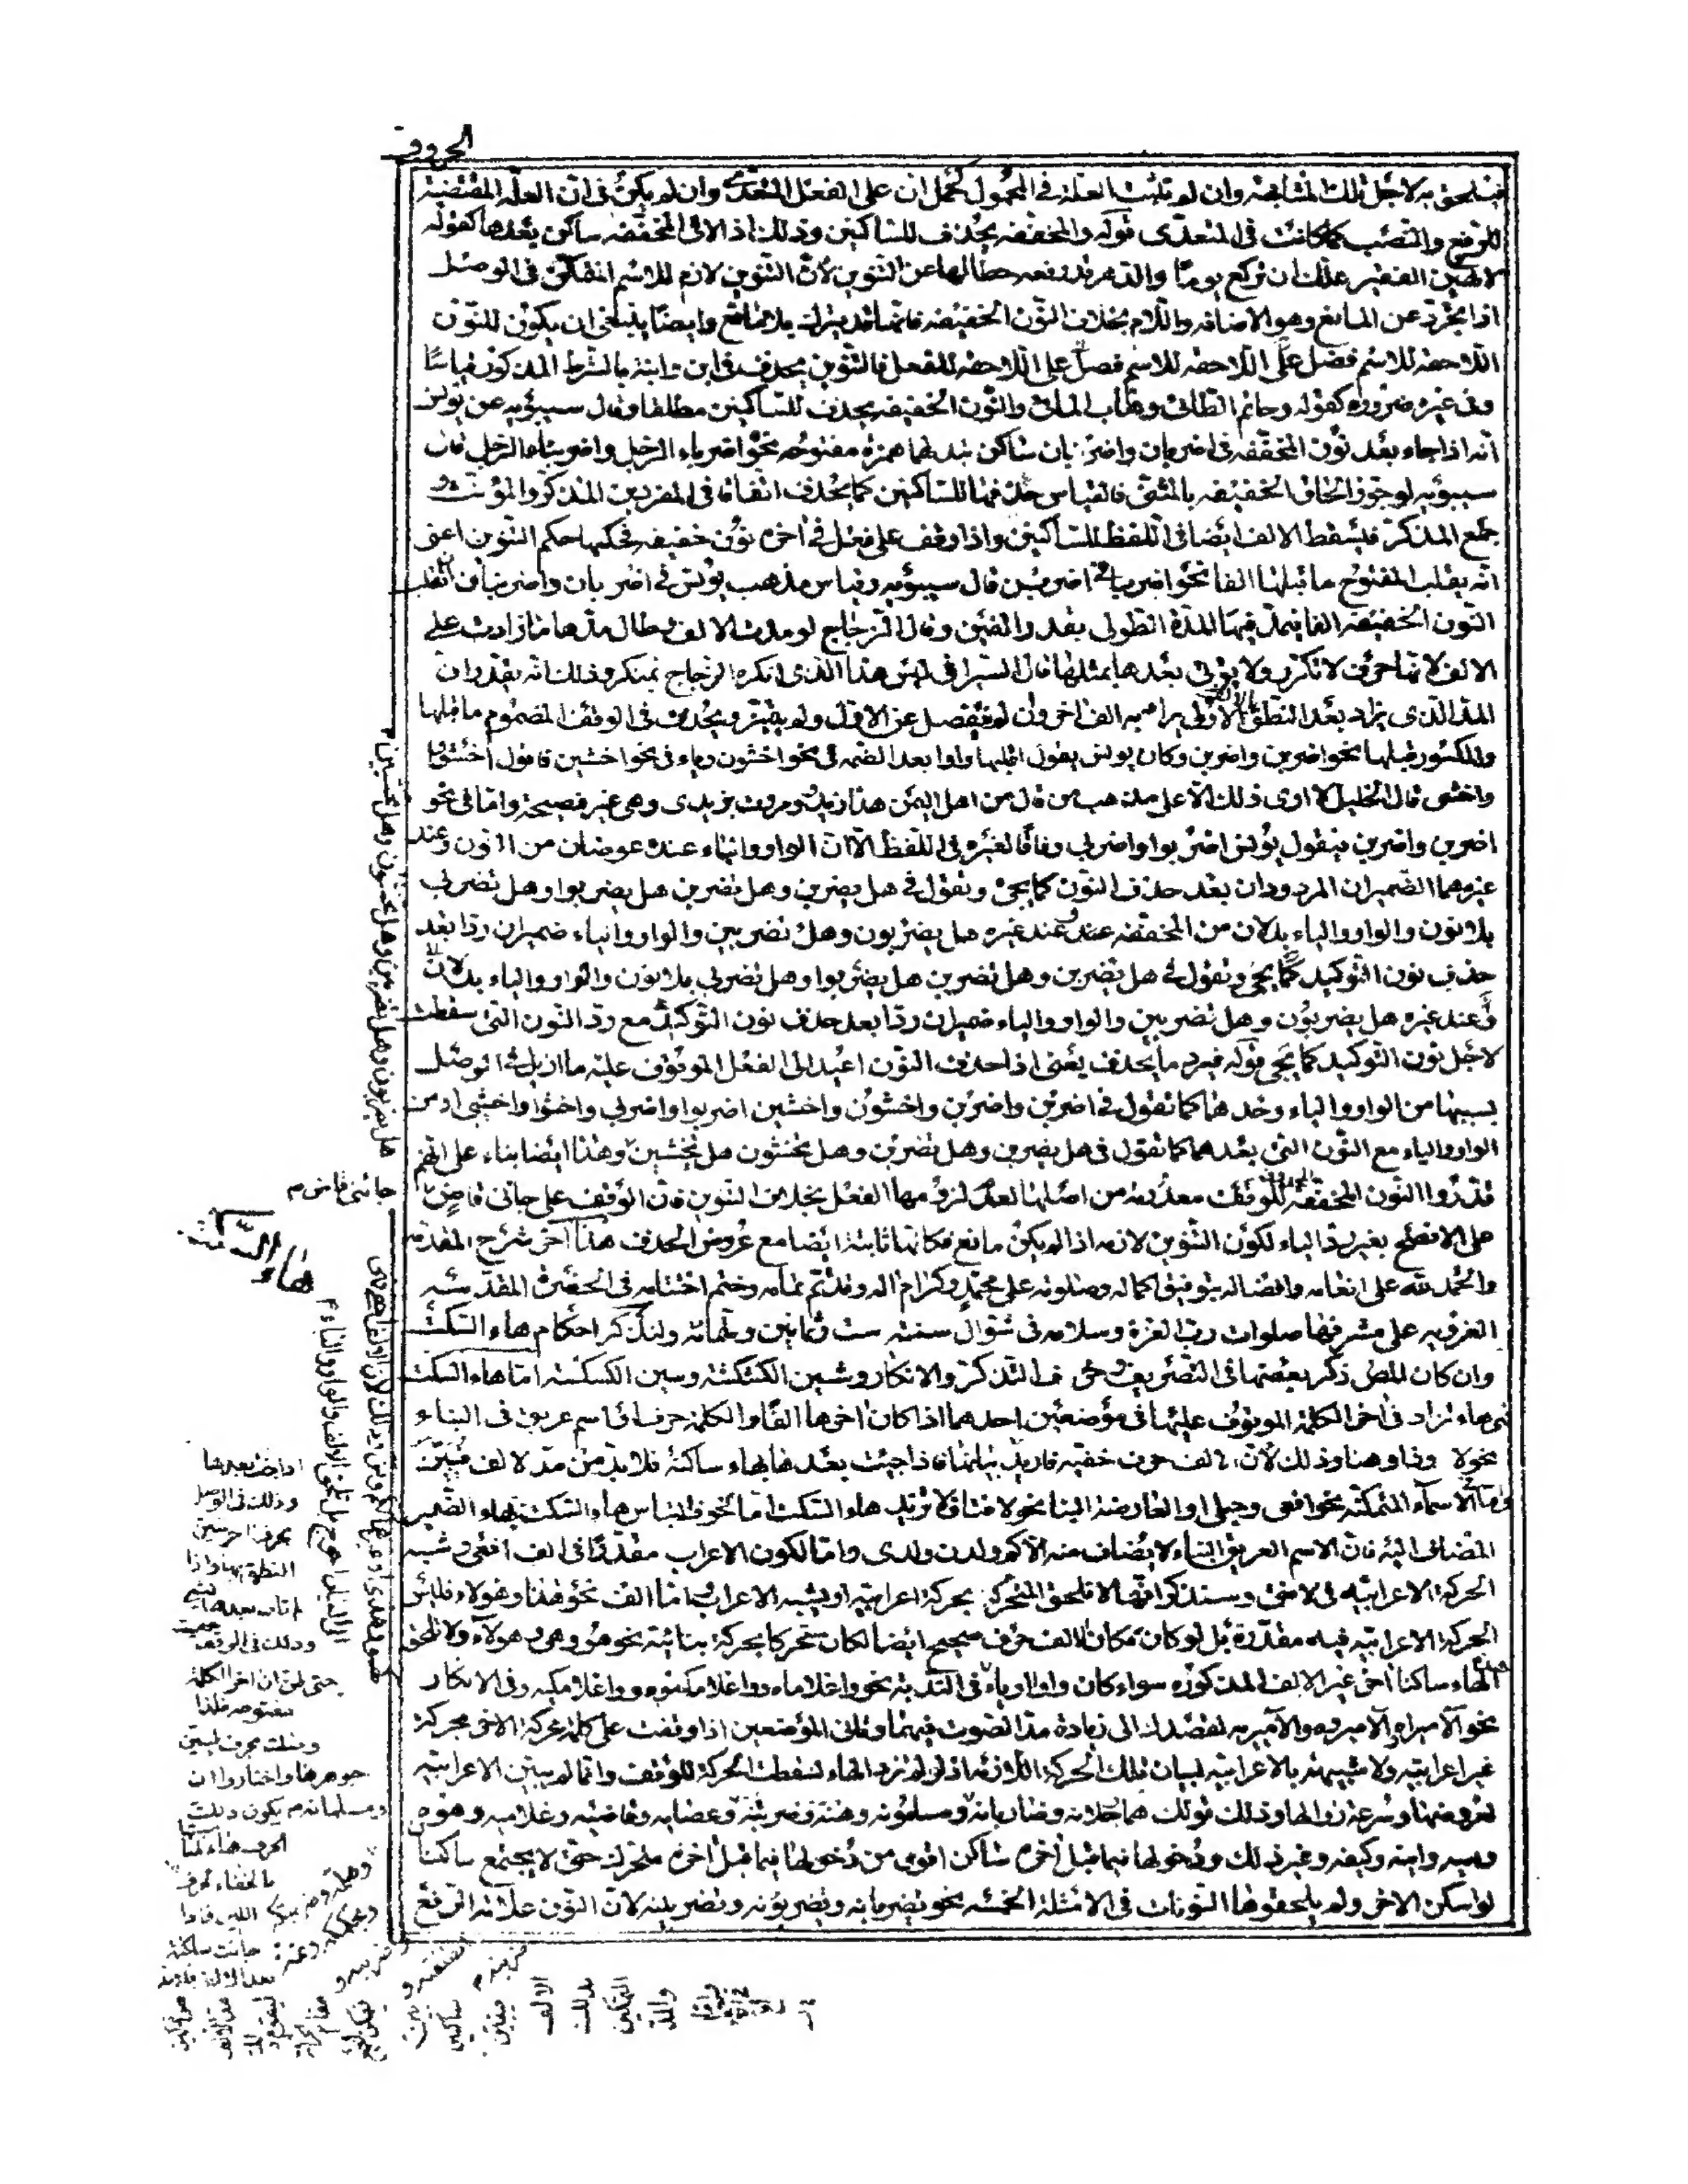 الحروف
فيلحق به لاجل تلك المشابهة وان لم تثبت العلة في المحمول كحمل ان على الفعل المتعدى وان لم يكن فى ان العلة المقتضية
للرفع والنصب كما كانت فى المتعدى قوله والمخففة يحذف للساكنين وذلك اذا لاقى المخففة ساكن بعدها كقوله
لا تهين الفقير علك ان تركع يوما والدهر قد رفعه حطا لها عن التنوين لان التنوين لازم للاسم المتمكن فى الوصل
اذا تجرد عن المانع وهو الاضافة واللام بخلاف النون الخفيفة فانها قد يترك بلا مانع وايضا ينبغى ان يكون للنون
اللاحقة للاسم فضل على اللاحقة للفعل فالتنوين يحذف فى ابن وابنة بالشرط المذكور قياسا
وفى غيره ضرورة كقوله وحاتم الطائى وهاب المائى والنون الخفيفة يحذف للساكنين مطلقا وقال سيبويه عن يونس
انه اذا جاء بعد نون المخففة فى اضربان واضربنان ساكن تبدلها همزة مفتوحة نحو اضرباء الرجل واضربناء الرجل قال
سيبويه لو جوز الحاق الخفيفة بالمثنى فالقياس حذفها للساكنين كما يحذف اتفاقا فى المفردين المذكر والمؤنث و
جمع المذكر فيسقط الالف ايضا فى اللفظ للساكنين واذا وقف على فعل فى اخره نون خفيفة فحكمها حكم التنوين اعنى
انه يقلب المفتوح ما قبلها الفا نحو اضربا فى اضربن قال سيبويه وقياس مذهب يونس فى اضربان واضربنان ان تقلب
النون الخفيفة الفا فيمد فيها المدة الطولى بقدر الفين وقال الزجاج لو مدت الالف وطال مدها ما زادت على
الالف لانها حرف لا تكرر ولا يؤتى بعدها بمثلها قال السيرافى ليس هذا الذى انكره الزجاج بمنكر وذلك انه يقدر ان
المد الذى يزاد بعد النطق بالالف الاولى يرام به الف اخرى وان لم ينفصل عن الاول ولم يتميز ويحذف فى الوقف المضموم ما قبلها
والمكسور قبلها نحو اضربن واضربن وكان يونس يقول اقلبها واوا بعد الضمة فى نحو اخشون وياء فى نحو اخشين فاقول اخشووا
واخشى قال الخليل لا ارى ذلك الا على مذهب من قال من اهل اليمن هذا زيدو ومررت بزيدى وهى غير فصيحة واما فى نحو
اضربن واضربن فيقول يونس اضربوا واضربى وفاقا لغيره فى اللفظ الا ان الواو والياء عنده عوضان من النون وعند
غيرهما الضميران المردودان بعد حذف النون كما يجئ وتقول فى هل يضربن وهل تضربن هل يضربوا وهل تضربى
بلا نون والواو والياء بدلان من المخففة عنده وعند غيره هل يضربون وهل تضربين والواو والياء ضميران ردا بعد
حذف نون التوكيد كما يجئ وتقول فى هل تضربن وهل تضربن هل يضربوا وهل تضربى بلا نون والواو والياء بدلان
وعند غيره هل يضربون وهل تضربين والواو والياء ضميران ردا بعد حذف نون التوكيد مع رد النون التى سقطت
لاجل نون التوكيد كما يجئ قوله فيرد ما يحذف يعنى اذا حذفت النون اعيد الى الفعل الموقوف عليه ما ازيل فى الوصل
بسببها من الواو والياء وحدهما كما تقول فى اضربن واضربن واخشون واخشين اضربوا واضربى واخشوا واخشى او من
الواو والياء مع النون التى بعدهما كما تقول فى هل يضربن وهل تضربن وهل يخشون هل تخشين وهذا ايضا بناء على انهم
قدروا النون المخففة المحذوفة للوقف معدومة من اصلها لعدم لزومها الفعل بخلاف التنوين فان الوقف على جائنى قاض
على الافصح بغير رد الياء لكون التنوين لازمة اذا لم يكن مانع فكانها ثابتة ايضا مع عروض الحذف هذا آخر شرح المقدمة
والحمد لله على انعامه وافضاله بتوفيق اكماله وصلوته على محمد وكرام اله وقد تم تمامه وختم اختتامه فى الحضرة المقدسة
الغروية على مشرفها صلوات رب العزة وسلامه فى شوال سنة ست وثمانين وستمائة ولنذكر احكام هاء السكت
وان كان المص ذكر بعضها فى التصريف وحرفى التذكر والانكار وشين الكشكشة وسين الكسكسة اما هاء السكت
فهى هاء تزاد فى اخر الكلمة الموقوف عليها فى موضعين احدهما اذا كان اخرها الفا والكلمة حرف او اسم عريق فى البناء
نحو لا وذا وهنا وذلك لان الالف حرف خفية فاريد بيانها فاذا جيئت بعدها بهاء ساكنة فلابد من مد الالف فتبين
واما الاسماء المتمكنة نحو افعى وحبلى او العارضة البنا نحو لا فتى فلا تزيد هاء السكت اما لخوف التباس هاء السكت بهاء الضمير
المضاف اليه فان الاسم العريق البناء لا يضاف منه الا كم ولدن ولدى واما لكون الاعراب مقدرا فى الف افعى وشبه
الحركة الاعرابية فى لا فتى وسنذكر انها لا تلحق المتحرك بحركة اعرابية او بشبه الاعراب اما الف نحو هذا وهؤلاء فليس
الحركة الاعرابية فيه مقدرة بل لو كان مكان الالف حرف صحيح ايضا لكان متحركا بحركة بنائية نحو هو وهى وهؤلاء ولا يلحق
الهاء ساكنا اخر غير الالف المذكورة سواء كان واوا او ياء فى الندبة نحو واغلاماه وواغلامكموه وواغلامكيه وفى الانكار
نحو آلاميراه آلاميروه وآلاميريه لقصدك الى زيادة مد الصوت فيهما وثانى الموضعين اذا وقفت على كلمة محركة الاخر بحركة
غير اعرابية ولا شبيهة بالاعرابية لبيان تلك الحركة اللازمة اذ لو لم تزد الهاء لسقطت الحركة للوقف وانما لم يبين الاعرابية
لعروضها وسرعة زوالها وذلك قولك هما رجلانه وضاربانه ومسلمونه وهنه وضربتنه وعصايه وقاضيه وغلاميه وهوه
وهيه واينه وكيفه وغير ذلك ودخولها فيما قبل اخره ساكن اقوى من دخولها فيما قبل اخره متحرك حتى لا يجتمع ساكنا
لو اسكن الاخر ولم يلحقوها النونات فى الامثلة الخمسة نحو يضربانه ويضربونه وتضربينه لان النون علامة الرفع
هل يضربون وهل تضربين وهل تخشون وهل تخشين م
جائنى قاض م
هاء السكت
اذا جئت بعدها
وذلك فى الوصل
بحرف اخر تبين
النطق بها واذا
لم تات بعدها بشئ
وذلك فى الوقف
حتى ظن ان اخر الكلمة
مفتوحة فلذا
وصلت بحرف ليتبين
جوهرها واختاروا ان
يكون ذلك
الحرف هاء